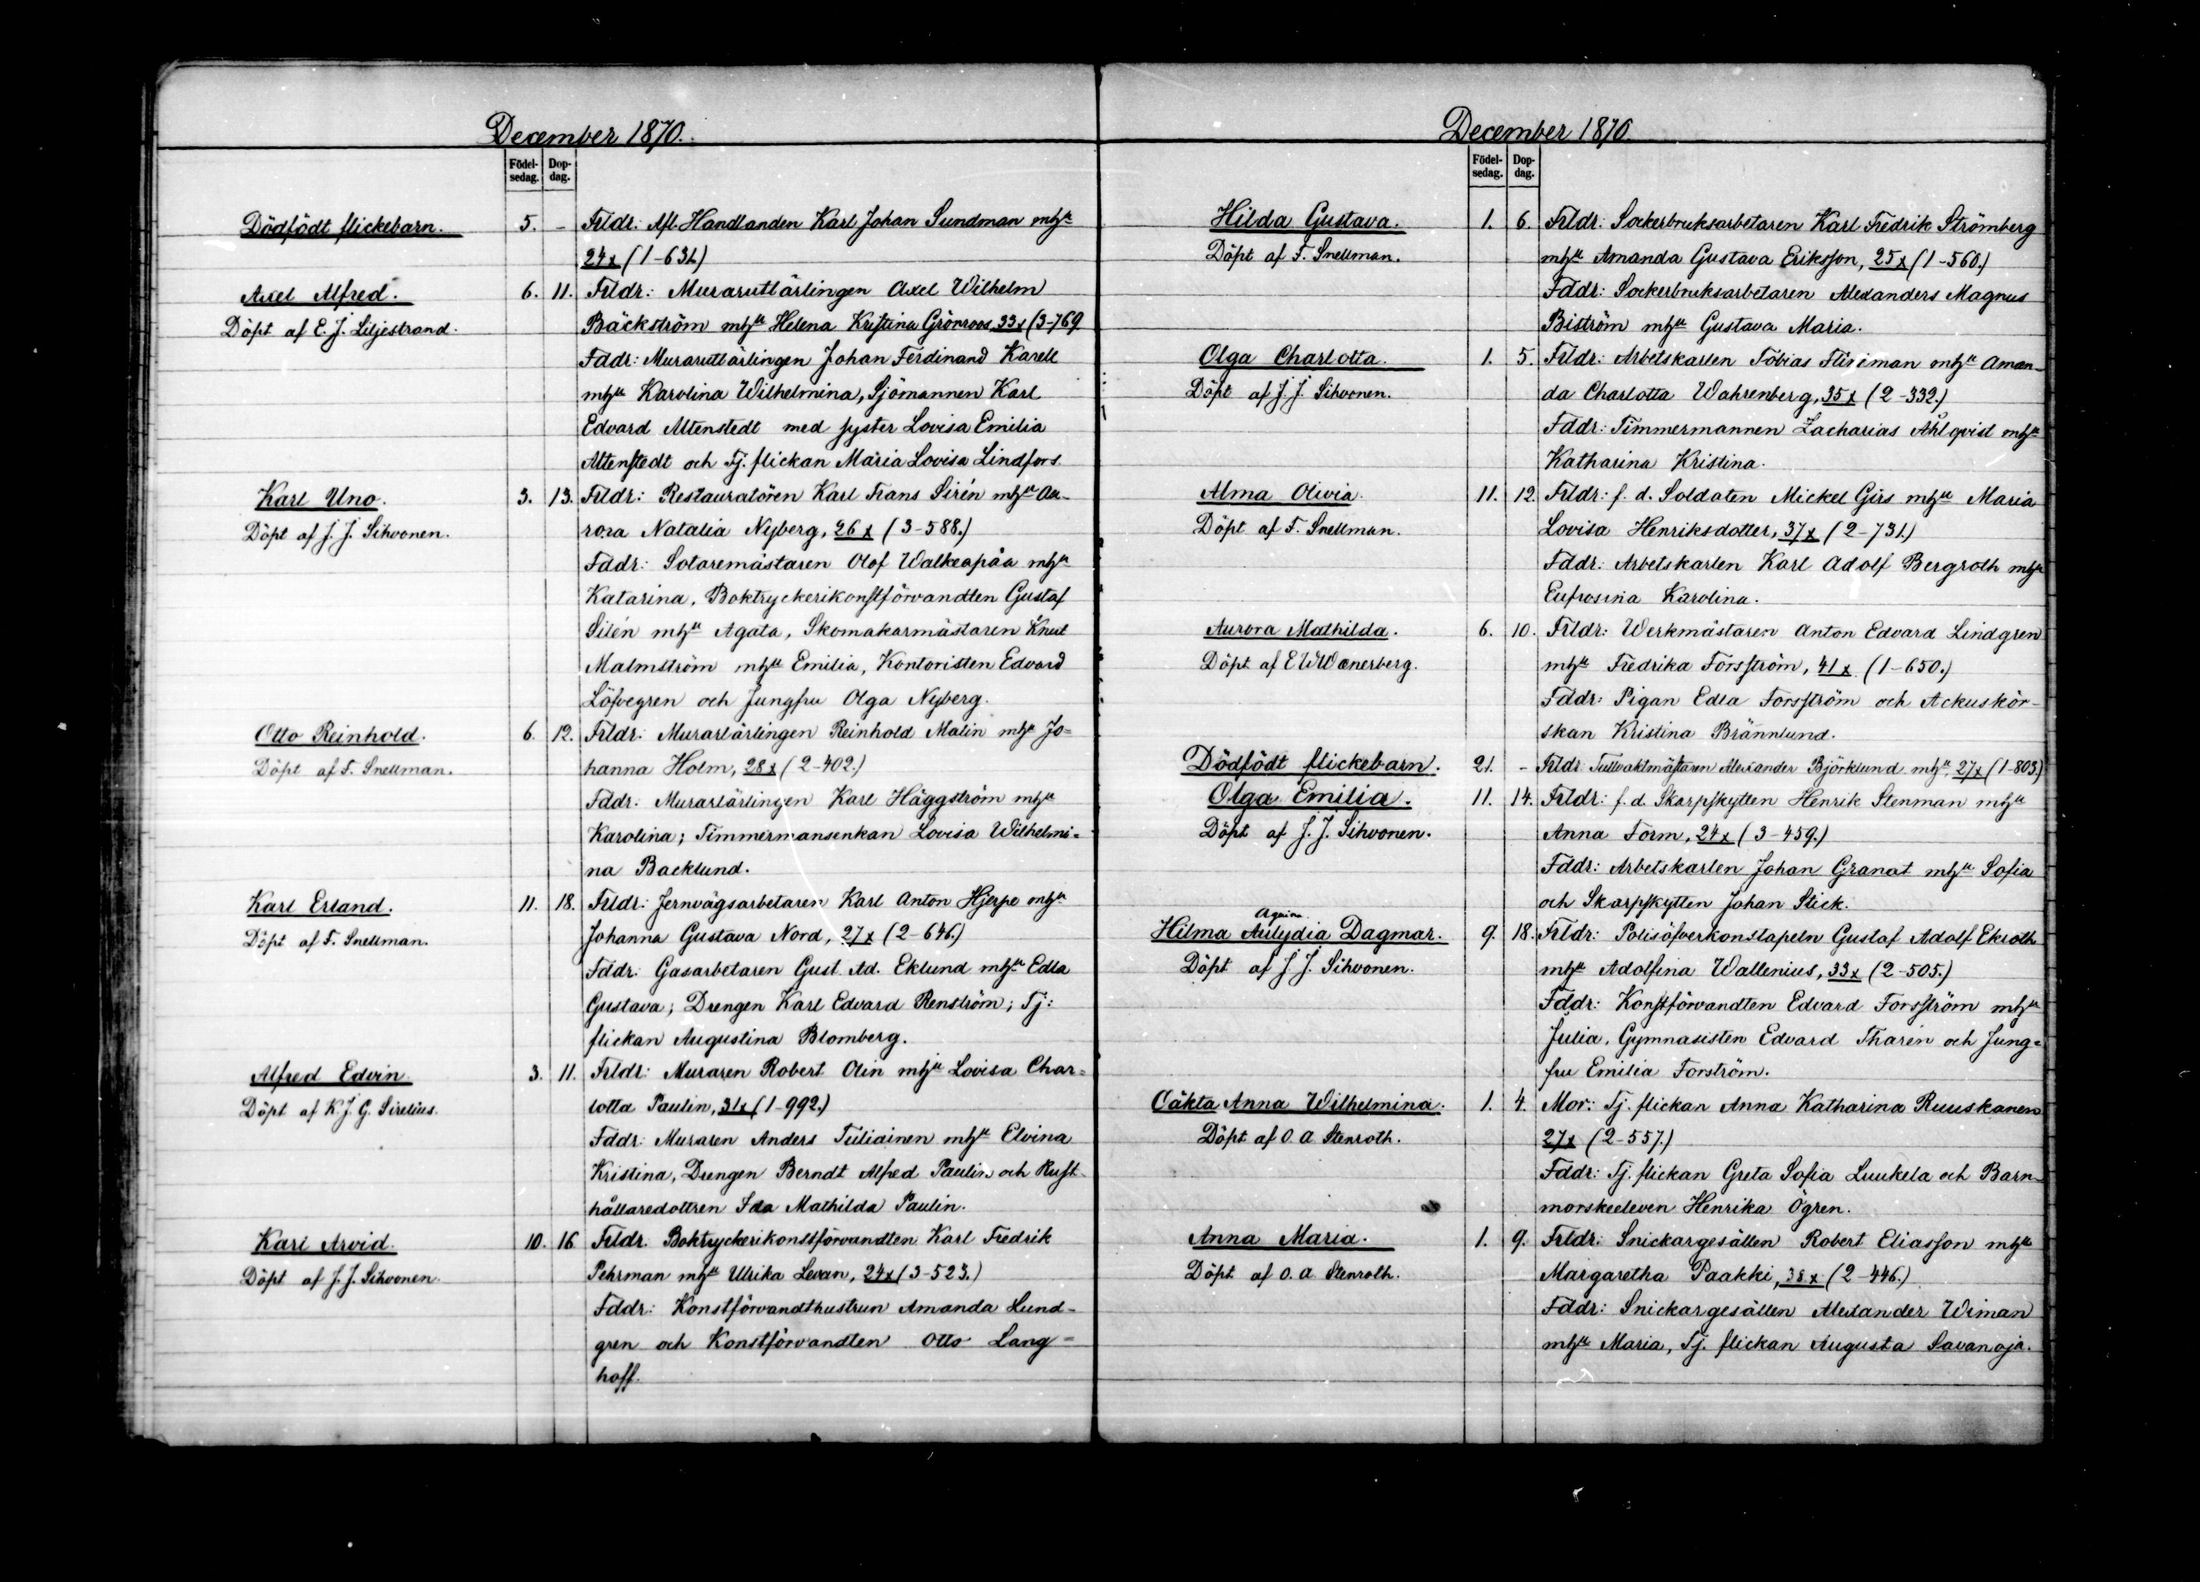 December 1870.
Födel-
sedag.
Dop-
dag.
Dödfödt flickebarn. 5. - Frldr: Afl. Handlanden Karl Johan Sundman mhu
24x (1-631)
Axel Alfred. 6. 11. Frldr: Murarutlärlingen Axel Wilhelm
Döpt af E. J. Liljestrand. Bäckström mhu Helena Kristina Grönroos, 33x (3-769
Fddr: Murarutlärlingen Johan Ferdinand Karell
mhu Karolina Wilhelmina, Sjömannen Karl
Edvard Altenstedt med syster Lovisa Emilia
Altenstedt och Tj. flickan Maria Lovisa Lindfors.
Karl Uno. 3. 13. Frldr: Restauratören Karl Frans Sirén mhu Au-
Döpt af J. J. Sihvonen. rora Natalia Nyberg, 26x (3-588.)
Fddr: Sotaremästaren Olof Walkeapää mhu
Katarina, Boktryckerikonstförvandten Gustaf
Silén mhu Agata, Skomakarmästaren Knut
Malmström mhu Emilia, Kontoristen Edvard
Löfvegren och Jungfru Olga Nyberg.
Otto Reinhold. 6. 12. Frldr: Murarlärlingen Reinhold Malin mhu Jo=
Döpt af F. Snellman. hanna Holm, 28x (2-402.)
Fddr: Murarlärlingen Karl Häggström mhu
Karolina; Timmermansenkan Lovisa Wilhelmi=
na Backlund.
Karl Erland. 11. 18. Frldr: Jernvägsarbetaren Karl Anton Hjerpe mhu
Döpt af F. Snellman. Johanna Gustava Nord, 27x (2-646.)
Fddr: Gasarbetaren Gust. Ad. Eklund mhu Edla
Gustava; Drengen Karl Edvard Renström; Tj:
flickan Augustina Blomberg.
Alfred Edvin. 3. 11. Frldr: Muraren Robert Olin mhu Lovisa Char=
Döpt af K. J. G. Sirelius. lotta Paulin, 31x (1-992.)
Fddr: Muraren Anders Tuliainen mhu Elvina
Kristina, Drengen Berndt Alfred Paulin och Rust-
hållaredottren Ida Mathilda Paulin.
Karl Arvid. 10. 16 Frldr. Boktryckerikonstförvandten Karl Fredrik
Döpt af J. J. Sihvonen. Pehrman mhu Ulrika Levan, 24x (3-523.)
Fddr: Konstförvandthustrun Amanda Lund-
gren och Konstförvandten Otto Lang=
hoff.
December 1870.
Födel-
sedag.
Dop-
dag.
Hilda Gustava. 1. 6. Frldr: Sockerbruksarbetaren Karl Fredrik Strömberg
Döpt af F. Snellman. mhu Amanda Gustava Eriksson, 25x (1-560.)
Fddr: Sockerbruksarbetaren Alexanders Magnus
Biström mhu Gustava Maria.
Olga Charlotta. 1. 5. Frldr: Arbetskarlen Tobias mhu Aman-
Döpt af J. J. Sihvonen. da Charlotta Wahrenberg, 35x (2-332.)
Fddr: Timmermannen Zacharias Åhlqvist mhu
Katharina Kristina.
Alma Olivia. 11. 12. Frldr: f. d. Soldaten Mickel Girs mhu Maria
Döpt af F. Snellman. Lovisa Henriksdotter, 37x (2-731.)
Fddr: Arbetskarlen Karl Adolf Bergroth mhu
Eufrosina Karolina.
Aurora Mathilda. 6. 10. Frldr: Werkmästaren Anton Edvard Lindgren
Döpt af E W Wænerberg. mhu Fredrika Forsström, 41x (1-650.)
Fddr: Pigan Edla Forsström och Ackuskör-
skan Kristina Brännlund.
Dödfödt flickebarn. 21. - Frldr: Tullvaktmästaren Alexander Björklund mhu. 27x (1-803.)
Olga Emilia. 11. 14. Frldr: f. d. Skarpskytten Henrik Stenman mhu
Döpt af J. J. Sihvonen. Anna Form, 24x (3-459.)
Fddr: Arbetskarlen Johan Granat mhu Sofia
och Skarpskytten Johan Stick.
Hilma Aulydia Dagmar. 9. 18. Frldr: Polisöfverkonstapeln Gustaf Adolf Ekroth
Döpt af J. J. Sihvonen. mhu Adolfina Wallenius, 33x (2-505.)
Fddr: Konstförvandten Edvard Forsström mhu
Julia, Gymnasisten Edvard Tharén och Jung=
fru Emilia Forström.
Oäkta Anna Wilhelmina. 1. 4. Mor: Tj. flickan Anna Katharina Ruuskanen
Döpt af O. A. Stenroth. 27x (2-557.)
Fddr: Tj. flickan Greta Sofia Luukela och Barn-
morskeeleven Henrika Ögren.
Anna Maria. 1. 9. Frldr: Snickargesällen Robert Eliasson mhu
Döpt af O. A. Stenroth. Margaretha Paakki, 38x (2-446.)
Fddr: Snickargesällen Alexander Wiman
mhu Maria, Tj. flickan Augusta Savanoja.